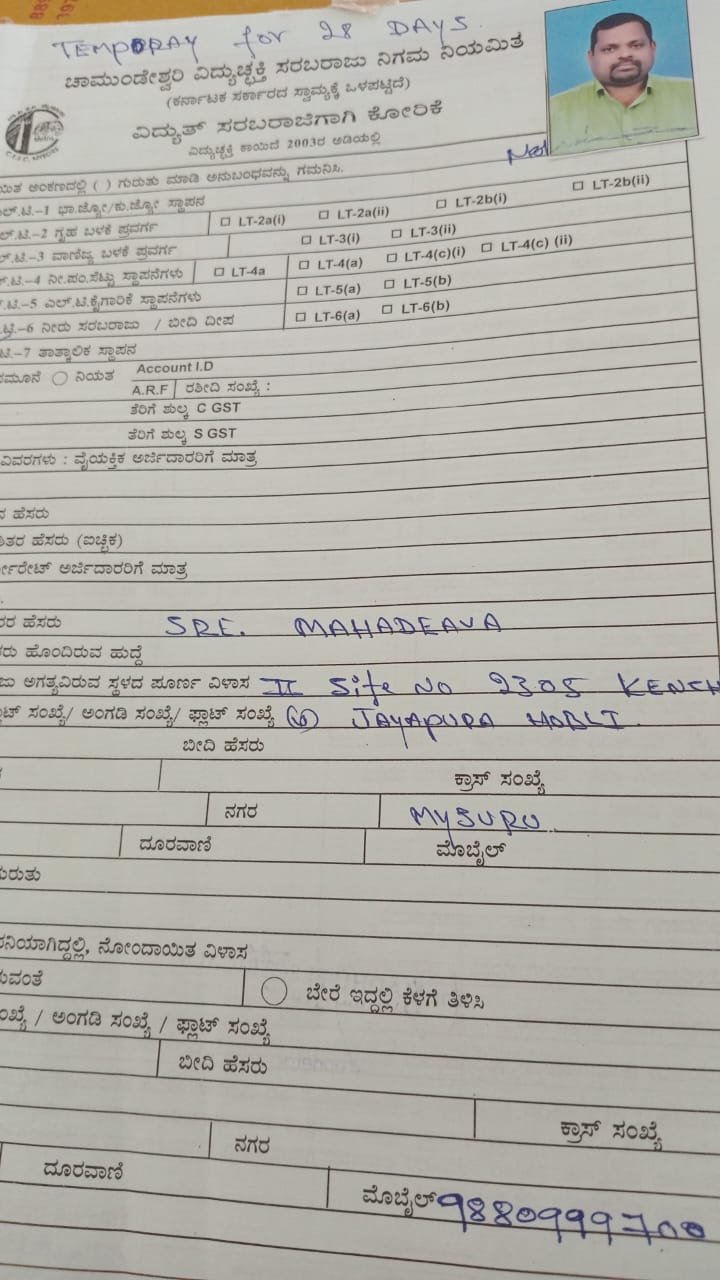 TEMPORAY for 28 DAYS
ಚಾಮುಂಡೇಶ್ವರಿ ವಿದ್ಯುಚ್ಛಕ್ತಿ ಸರಬರಾಜು ನಿಗಮ ನಿಯಮಿತ
(ಕರ್ನಾಟಕ ಸರ್ಕಾರದ ಸ್ವಾಮ್ಯಕ್ಕೆ ಒಳಪಟ್ಟಿದೆ)
ವಿದ್ಯುತ್ ಸರಬರಾಜಿಗಾಗಿ ಕೋರಿಕೆ
ವಿದ್ಯುಚ್ಛಕ್ತಿ ಕಾಯಿದೆ 2003ರ ಅಡಿಯಲ್ಲಿ
ಅಂಕಣದಲ್ಲಿ ( ) ಗುರುತು ಮಾಡಿ ಅನುಬಂಧವನ್ನು ಗಮನಿಸಿ.
ಲ್.ಟಿ.-1 ಭಾ.ಜ್ಯೋ/ಕು.ಜ್ಯೋ ಸ್ಥಾಪನ
ಲ್.ಟಿ.-2 ಗೃಹ ಬಳಕೆ ಪ್ರವರ್ಗ □ LT-2a(i) □ LT-2a(ii) □ LT-2b(i) □ LT-2b(ii)
ಲ್.ಟಿ.-3 ವಾಣಿಜ್ಯ ಬಳಕೆ ಪ್ರವರ್ಗ □ LT-3(i) □ LT-3(ii)
.ಟಿ.-4 ನೀ.ಪಂ.ಸೆಟ್ಟು ಸ್ಥಾಪನೆಗಳು □ LT-4a □ LT-4(a) □ LT-4(c)(i) □ LT-4(c) (ii)
.ಟಿ.-5 ಎಲ್.ಟಿ.ಕೈಗಾರಿಕೆ ಸ್ಥಾಪನೆಗಳು □ LT-5(a) □ LT-5(b)
ಟಿ.-6 ನೀರು ಸರಬರಾಜು / ಬೀದಿ ದೀಪ □ LT-6(a) □ LT-6(b)
ಟಿ.-7 ತಾತ್ಕಾಲಿಕ ಸ್ಥಾಪನ
ನಮೂನೆ ○ ನಿಯತ Account I.D
A.R.F ರಶೀದಿ ಸಂಖ್ಯೆ :
ತೆರಿಗೆ ಶುಲ್ಕ C GST
ತೆರಿಗೆ ಶುಲ್ಕ S GST
ವಿವರಗಳು : ವೈಯಕ್ತಿಕ ಅರ್ಜಿದಾರರಿಗೆ ಮಾತ್ರ
ಹೆಸರು
ತರ ಹೆಸರು (ಐಚ್ಛಿಕ)
ರ್ಪೊರೇಟ್ ಅರ್ಜಿದಾರರಿಗೆ ಮಾತ್ರ
ರರ ಹೆಸರು SRE. MAHADEAVA
ರರು ಹೊಂದಿರುವ ಹುದ್ದೆ
ಜು ಅಗತ್ಯವಿರುವ ಸ್ಥಳದ ಪೂರ್ಣ ವಿಳಾಸ II Site No 2305 KENCH
ಟ್ ಸಂಖ್ಯೆ/ ಅಂಗಡಿ ಸಂಖ್ಯೆ/ ಫ್ಲಾಟ್ ಸಂಖ್ಯೆ JAYAPURA HOBLI
ಬೀದಿ ಹೆಸರು
ಕ್ರಾಸ್ ಸಂಖ್ಯೆ
ನಗರ MYSURU
ದೂರವಾಣಿ ಮೊಬೈಲ್
ಗುರುತು
ನಿಯಾಗಿದ್ದಲ್ಲಿ, ನೋಂದಾಯಿತ ವಿಳಾಸ
ರುವಂತೆ ○ ಬೇರೆ ಇದ್ದಲ್ಲಿ ಕೆಳಗೆ ತಿಳಿಸಿ
ಂಖ್ಯೆ / ಅಂಗಡಿ ಸಂಖ್ಯೆ / ಫ್ಲಾಟ್ ಸಂಖ್ಯೆ
ಬೀದಿ ಹೆಸರು
ಕ್ರಾಸ್ ಸಂಖ್ಯೆ
ನಗರ
ದೂರವಾಣಿ ಮೊಬೈಲ್ 9880999700